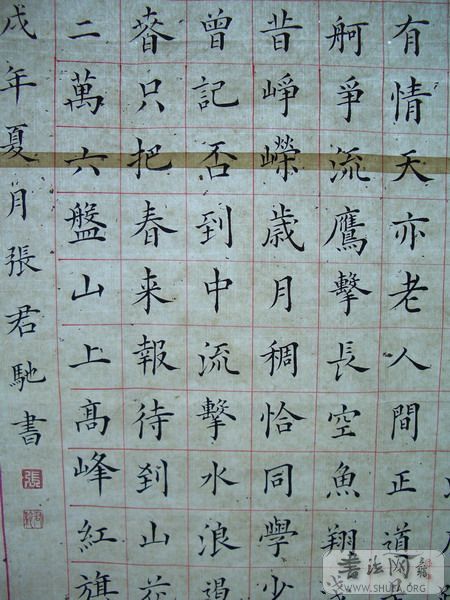 有情天亦老人間正道
舸爭流鷹擊長空魚翔
昔崢嶸歲月稠恰同學少
曾記否到中流擊水浪遏
只把春来報待到山花
二萬六盤山上髙峰紅旗
戌年夏月張君馳書
張
書法网
WWW.SHUFA.ORG